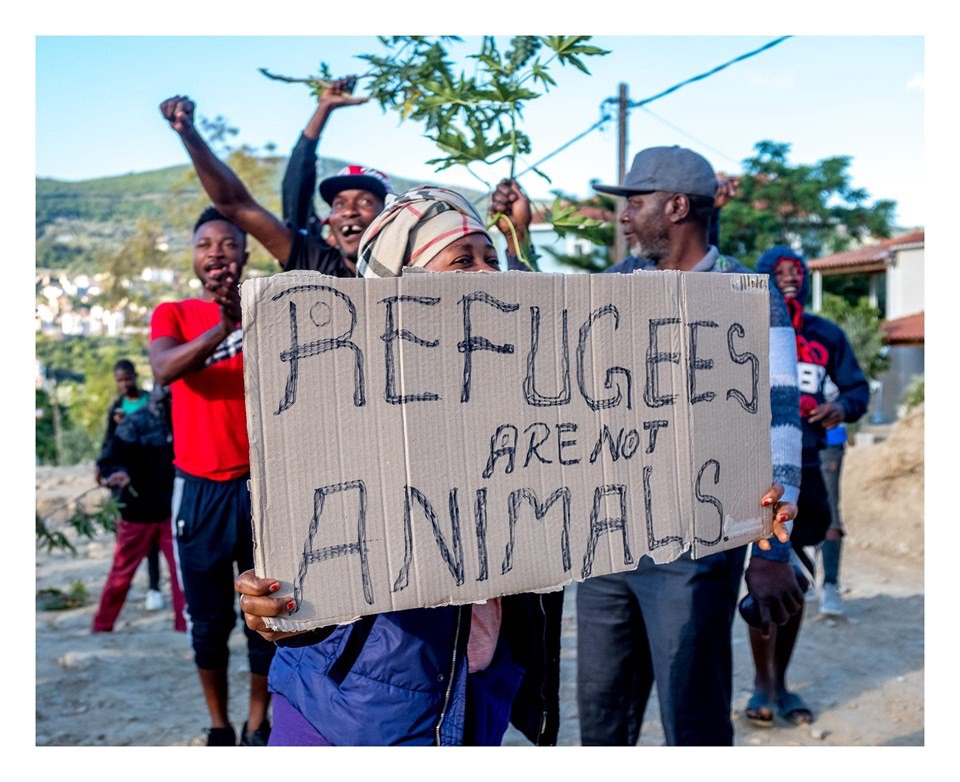 REFUGEES
ARE NOT
ANIMALS.